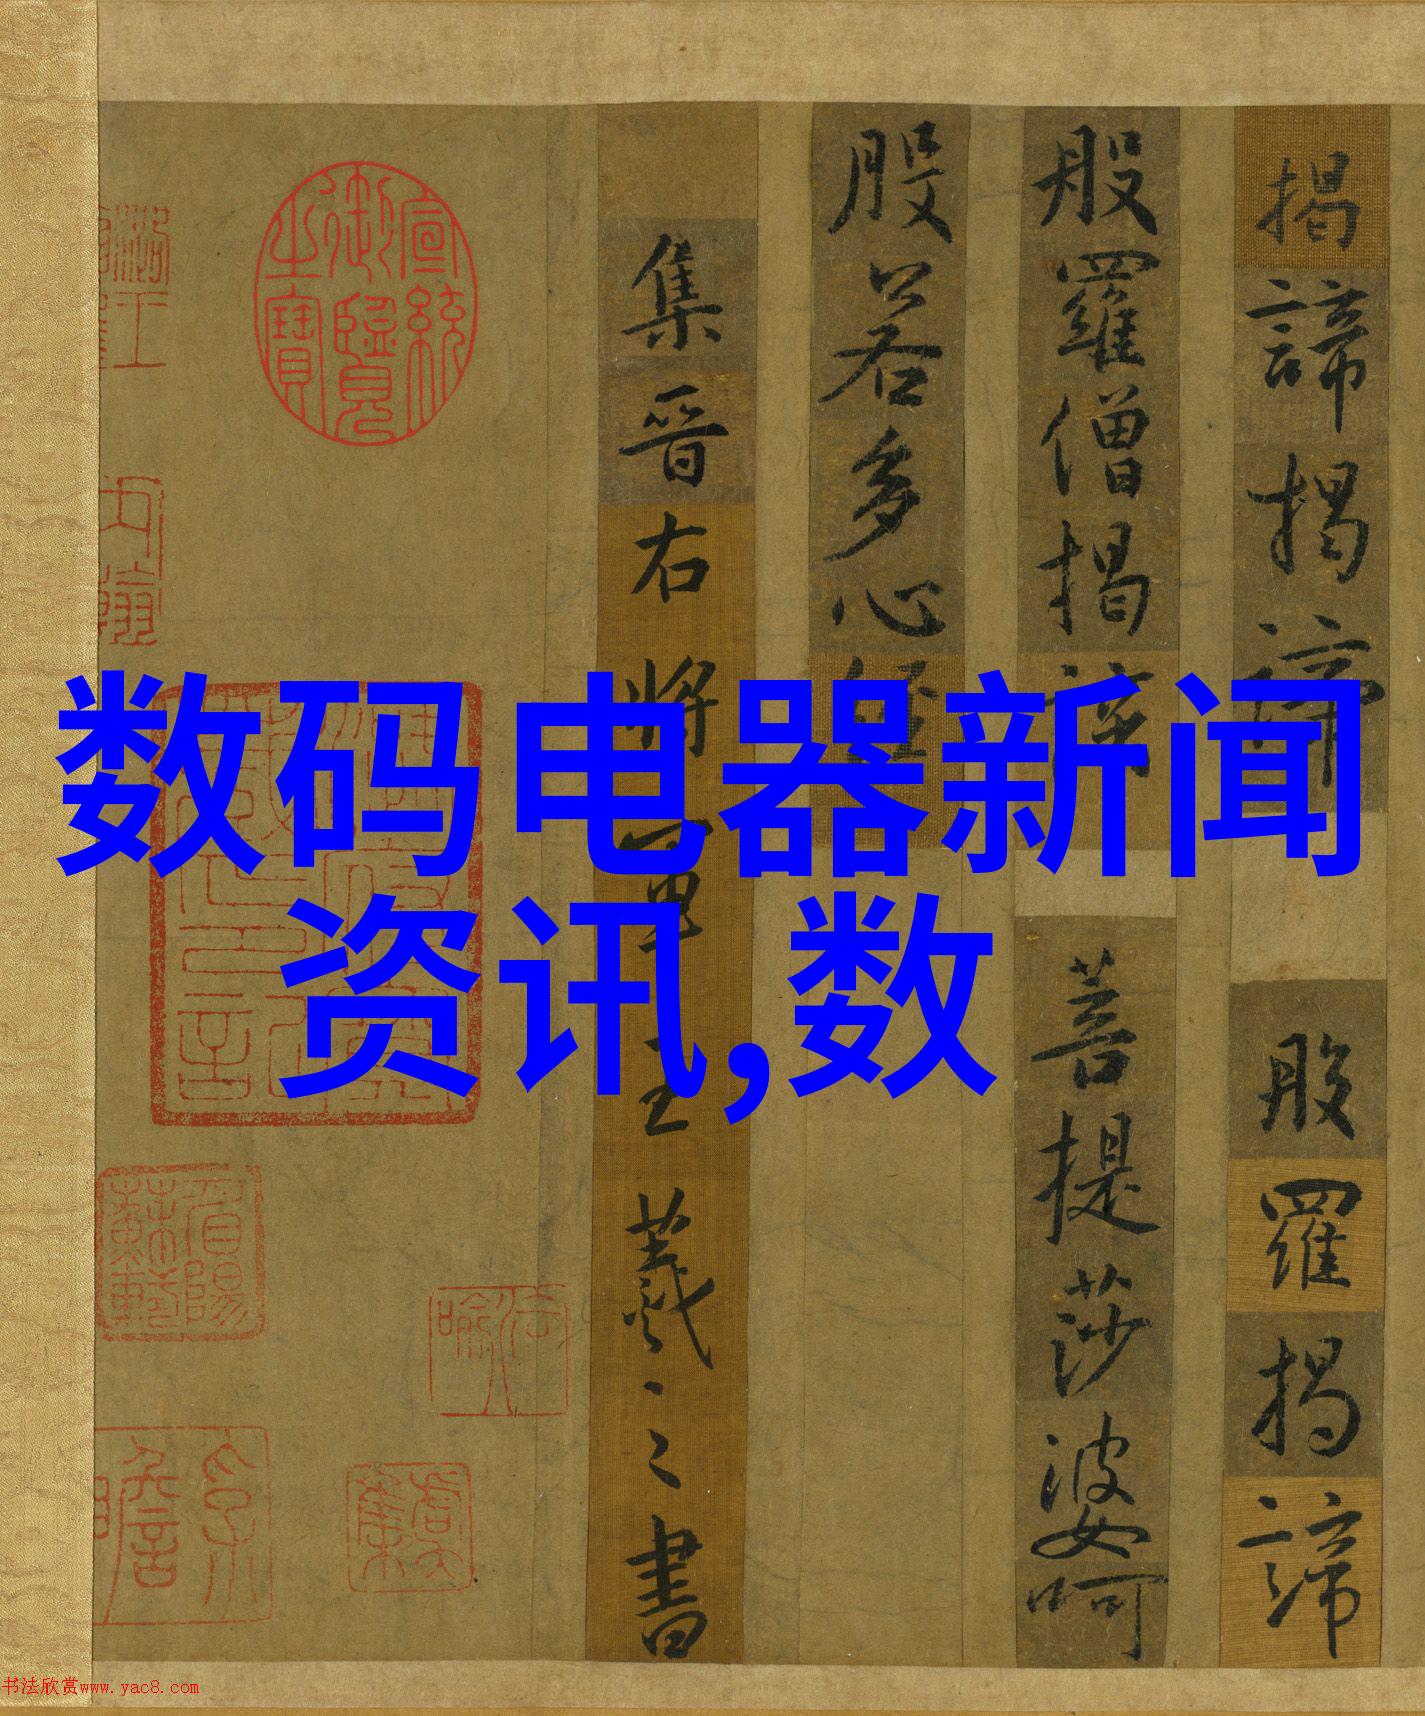 揭諦揭諦
般羅揭諦
般羅僧揭諦
菩提莎婆呵
般若多心經
集晉右將軍王羲之書
宣統御覽之寶
數码电器新闻
资讯,数
书法欣赏www.yac8.com